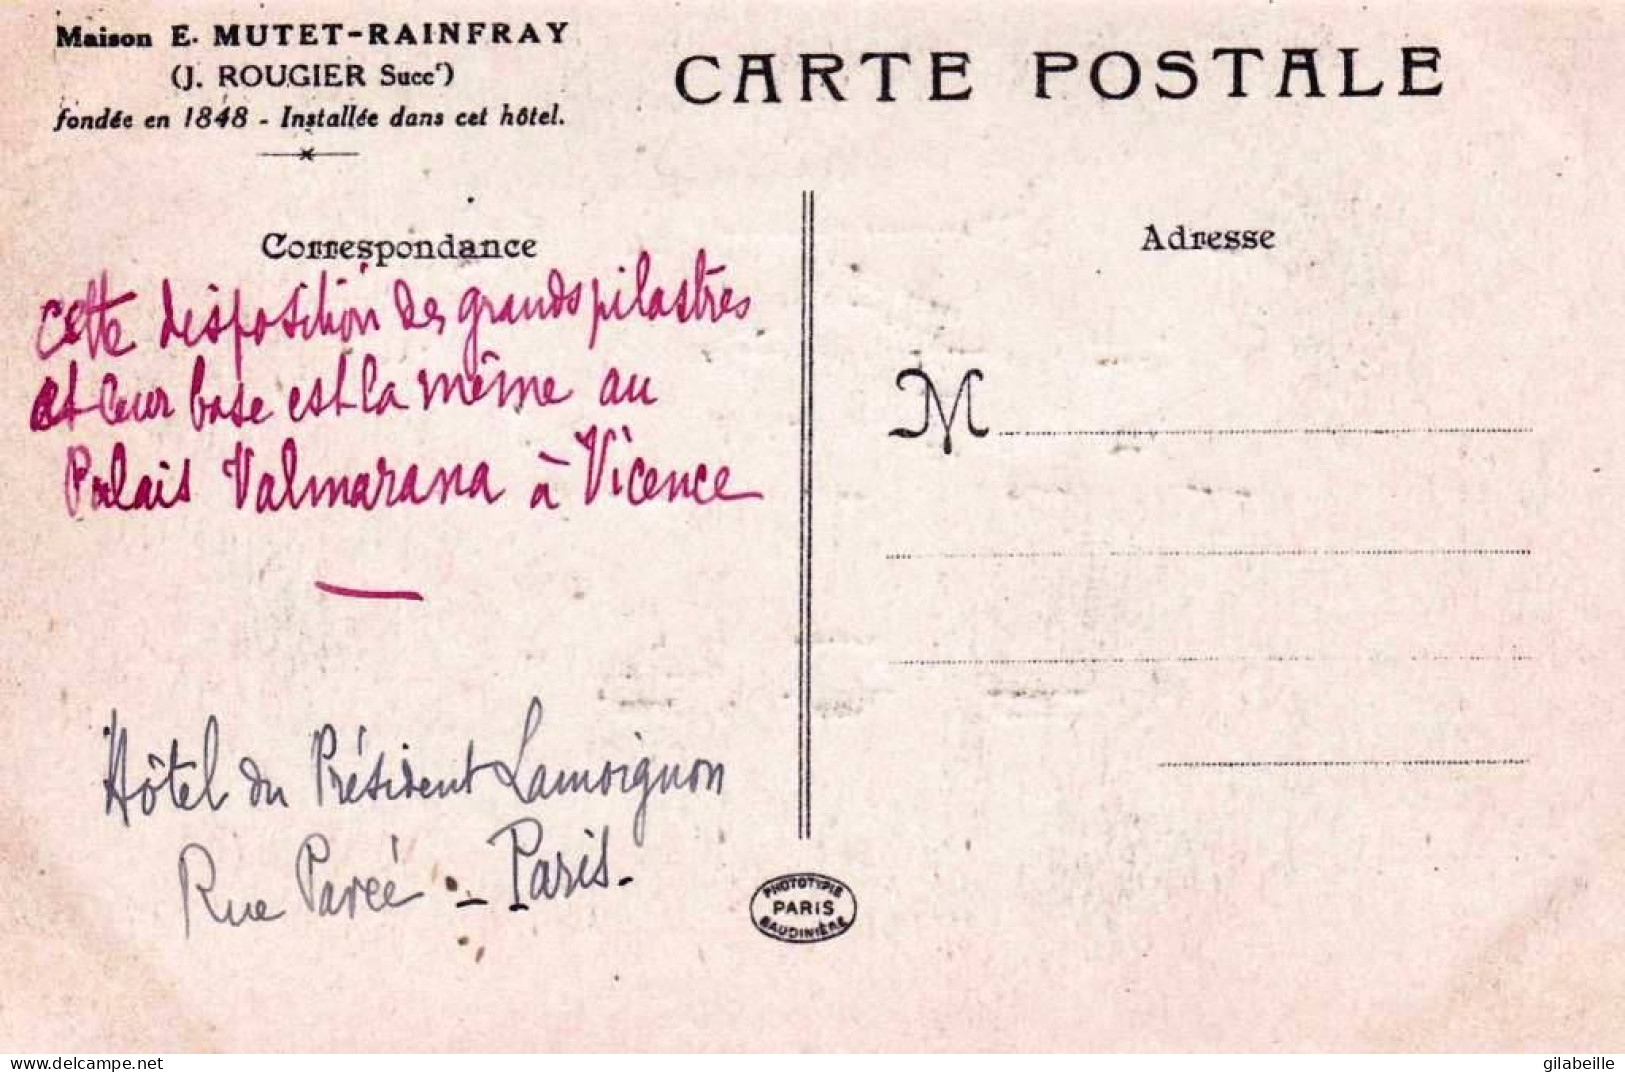 Maison E. MUTET-RAINFRAY
(J. ROUGIER Succʳ)
fondée en 1848 - Installée dans cet hôtel.
CARTE POSTALE
Correspondance
Adresse
Cette disposition des grands pilastres
et leur base est la même au
Palais Valmarana à Vicence
M
Hôtel du Président Lamoignon
Rue Pavée - Paris.
PHOTOTYPIE
PARIS
BAUDINIÈRE
gilabeille